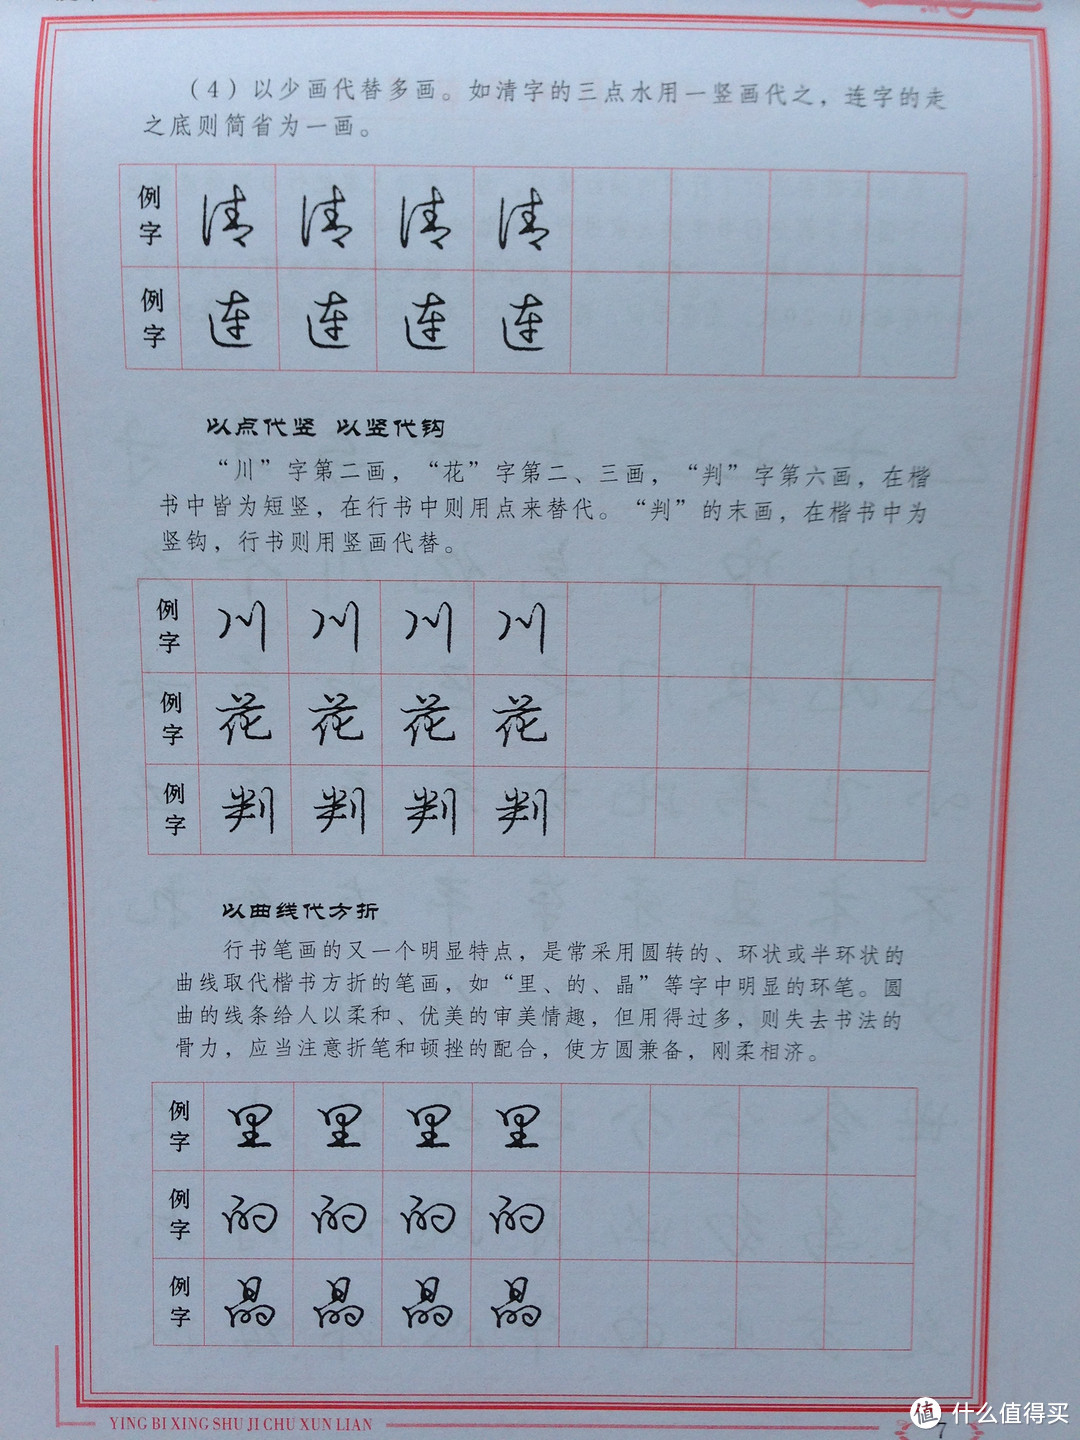 （4）以少画代替多画。如清字的三点水用一竖画代之，连字的走
之底则简省为一画。
例字 清 清 清 清
例字 连 连 连 连
以点代竖 以竖代钩
“川”字第二画，“花”字第二、三画，“判”字第六画，在楷
书中皆为短竖，在行书中则用点来替代。“判”的末画，在楷书中为
竖钩，行书则用竖画代替。
例字 川 川 川 川
例字 花 花 花 花
例字 判 判 判 判
以曲线代方折
行书笔画的又一个明显特点，是常采用圆转的、环状或半环状的
曲线取代楷书方折的笔画，如“里、的、晶”等字中明显的环笔。圆
曲的线条给人以柔和、优美的审美情趣，但用得过多，则失去书法的
骨力，应当注意折笔和顿挫的配合，使方圆兼备，刚柔相济。
例字 里 里 里 里
例字 的 的 的 的
例字 晶 晶 晶 晶
YING BI XING SHU JI CHU XUN LIAN
7
值 什么值得买